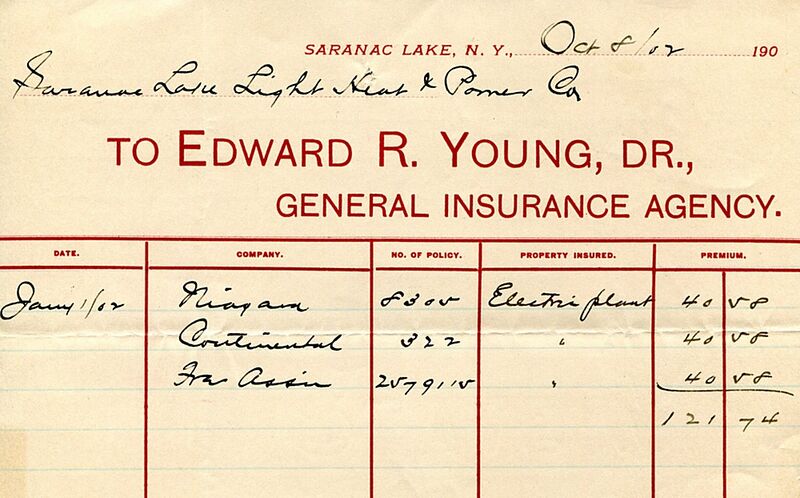 SARANAC LAKE, N. Y., Oct 8/02 190
Saranac Lake Light Heat & Power Co
TO EDWARD R. YOUNG, DR.,
GENERAL INSURANCE AGENCY.
DATE. COMPANY. NO. OF POLICY. PROPERTY INSURED. PREMIUM.
Jany 1/02 Niagara 8305 Electric plant 40 58
Continental 322 " 40 58
Assn 257915 " 40 58
121 74